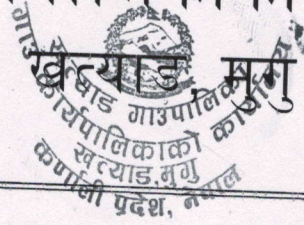 खत्याड, मुगु
खत्याड गाउपालिका
गाउँकार्यपालिकाको कार्यालय
खत्याड,मुगु
कर्णाली प्रदेश, नेपाल